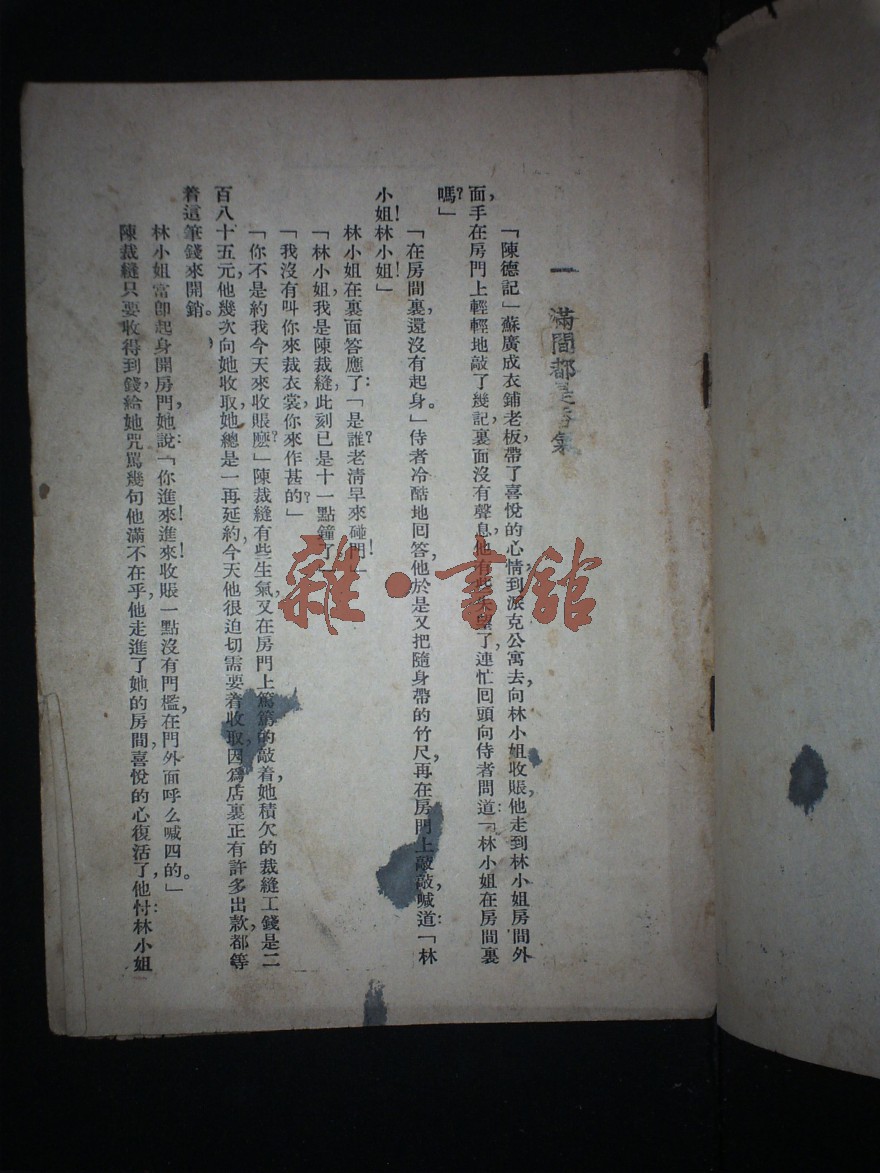 一 滿間都是香氣
「陳德記」蘇廣成衣鋪老板，帶了喜悅的心情，到派克公寓去向林小姐收賬，他走到林小姐房間外
面，手在房門上輕輕地敲了幾記，裏面沒有聲息，他有些失望了，連忙囘頭向侍者問道：「林小姐在房間裏
嗎？」
「在房間裏，還沒有起身。」侍者冷酷地囘答，他於是又把隨身帶的竹尺，再在房門上敲敲，喊道：「林
小姐！林小姐！」
林小姐在裏面答應了：「是誰？老清早來碰門！」
「林小姐，我是陳裁縫，此刻已是十一點鐘了
「我沒有叫你來裁衣裳，你來作甚的？」
「你不是約我今天來收賬麽？」陳裁縫有些生氣，又在房門上篤篤的敲着，她積欠的裁縫工錢是二
百八十五元，他幾次向她收取，她總是一再延約，今天他很迫切需要着收取，因爲店裏正有許多出款，都等
着這筆錢來開銷。
林小姐當卽起身開房門，她說：「你進來！進來！收賬一點沒有門檻，在門外面呼么喊四的。」
陳裁縫只要收得到錢，給她咒罵幾句，他滿不在乎，他走進了她的房間，喜悅的心復活了，他忖：林小姐
雜·書館